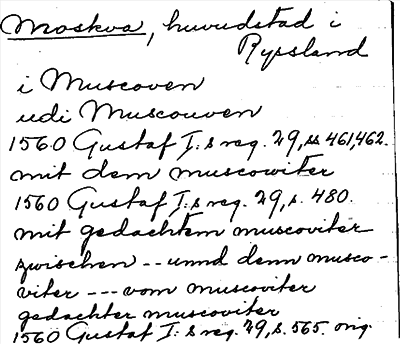 Moskva, huvudstad i
Ryssland
i Muscoven
udi Muscouven
1560 Gustaf I:s reg. 29, ss 461,462.
mit dem muscowiter
1560 Gustaf I:s reg. 29, s. 480.
mit gedachtem muscoviter
zwischen -- unnd denn musco-
viter --- vom muscoviter
gedachter muscoviter
1560 Gustaf I:s reg. 29, s. 565. orig.